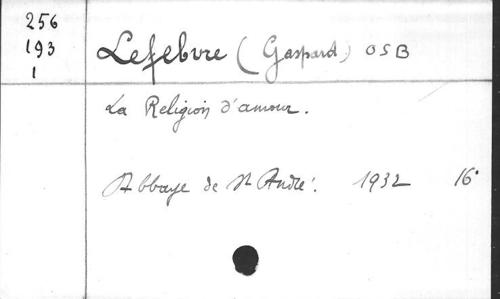 256
193
1
Lefebvre (Gaspard) OSB
La Religion d'amour.
Abbaye de St André. 1932 16°